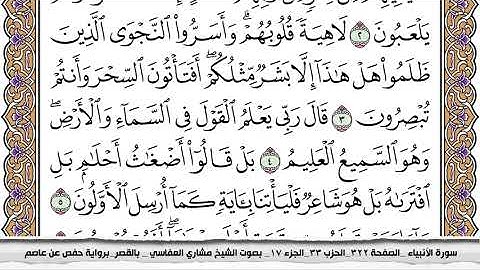 يَلْعَبُونَ ٢ لَاهِيَةً قُلُوبُهُمْ ۗ وَأَسَرُّوا۟ ٱلنَّجْوَى ٱلَّذِينَ
ظَلَمُوا۟ هَلْ هَـٰذَآ إِلَّا بَشَرٌ مِّثْلُكُمْ ۖ أَفَتَأْتُونَ ٱلسِّحْرَ وَأَنتُمْ
تُبْصِرُونَ ٣ قَالَ رَبِّى يَعْلَمُ ٱلْقَوْلَ فِى ٱلسَّمَآءِ وَٱلْأَرْضِ ۖ
وَهُوَ ٱلسَّمِيعُ ٱلْعَلِيمُ ٤ بَلْ قَالُوٓا۟ أَضْغَـٰثُ أَحْلَـٰمٍۭ بَلِ
ٱفْتَرَىٰهُ بَلْ هُوَ شَاعِرٌ فَلْيَأْتِنَا بِـَٔايَةٍ كَمَآ أُرْسِلَ ٱلْأَوَّلُونَ ٥
سورة الأنبياء _ الصفحة ٣٢٢_ الحزب ٣٣_ الجزء ١٧_ بصوت الشيخ مشاري العفاسي _ بالقصر_ برواية حفص عن عاصم